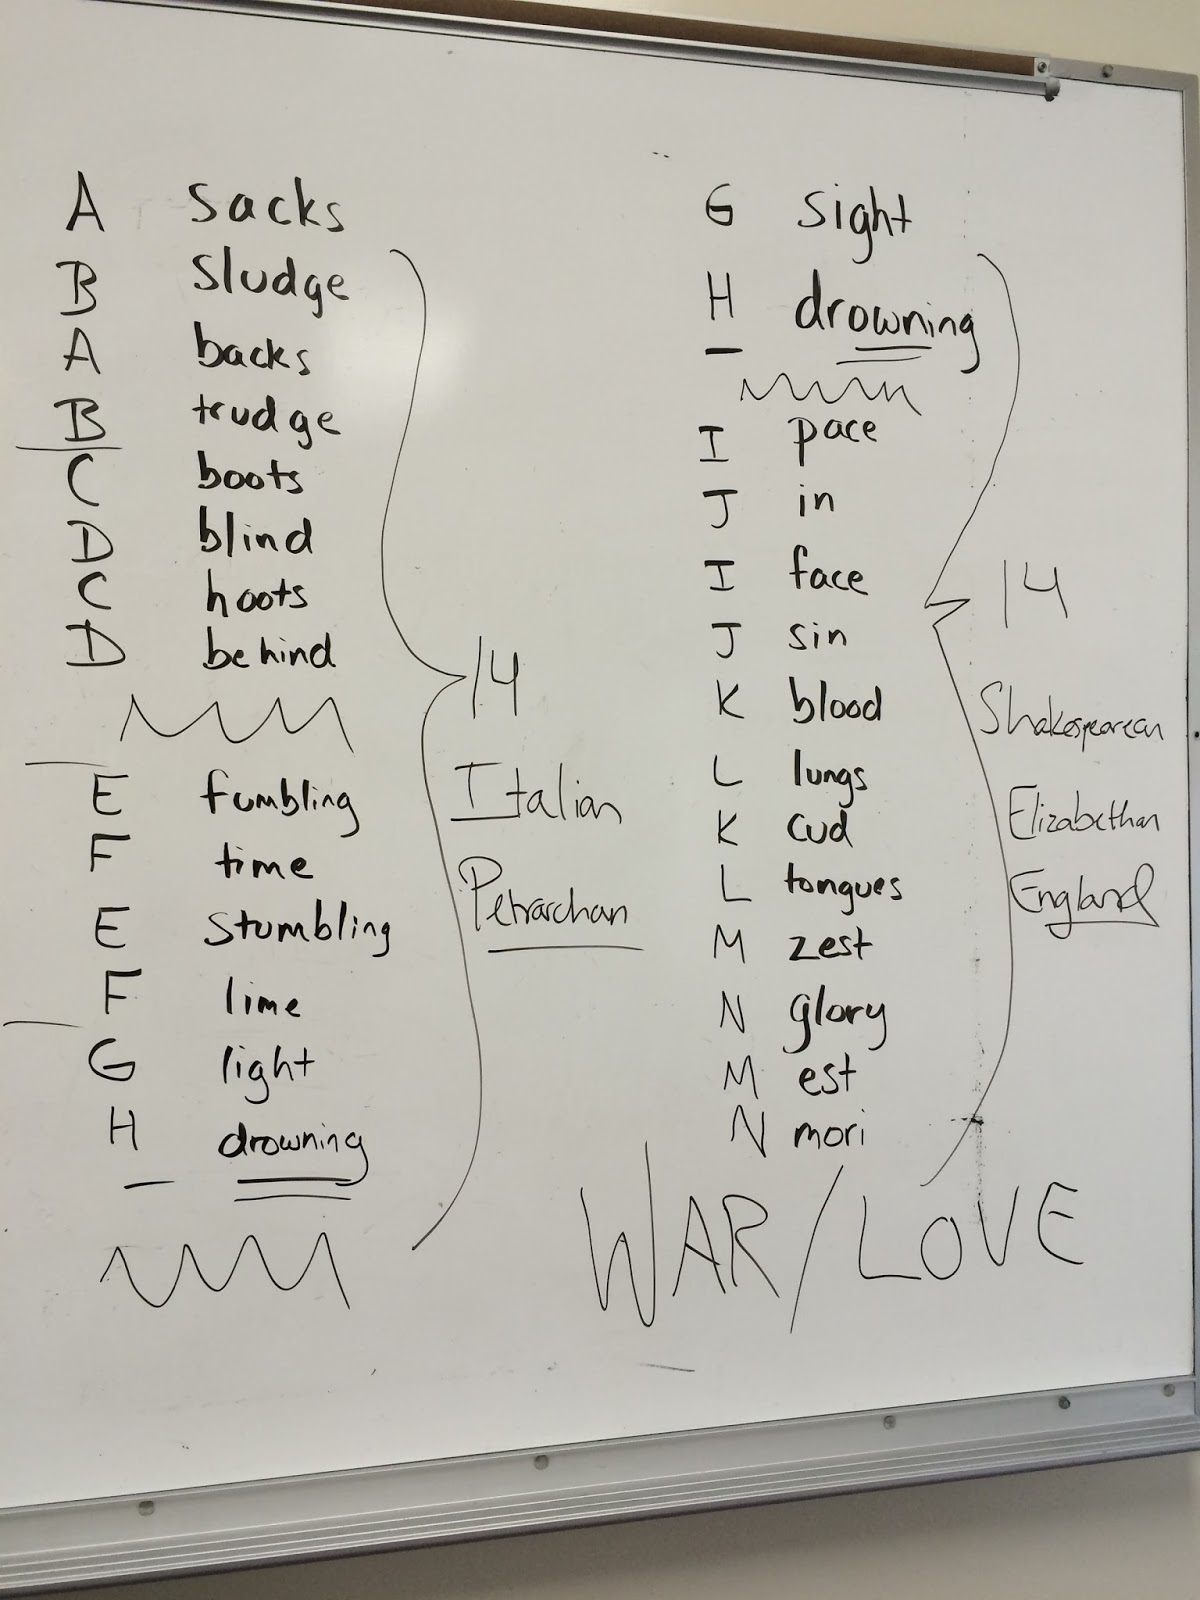 A sacks
B sludge
A backs
B trudge
C boots
D blind
C hoots
D behind
E fumbling
F time
E stumbling
F lime
G light
H drowning
14
Italian
Petrarchan
G sight
H drowning
I pace
J in
I face
J sin
K blood
L lungs
K cud
L tongues
M zest
N glory
M est
N mori
14
Shakespearean
Elizabethan
England
WAR/LOVE